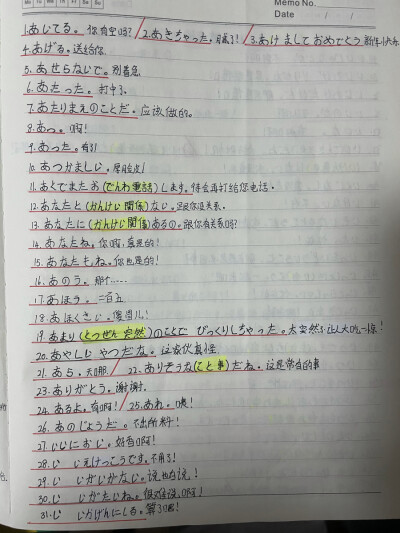 Mo Tu We Th Fr Sa Su
Memo No.
Date / /
1.あいてる。你有空吗? / 2.あきちゃった。腻了! / 3.あけましておめでとう 新年快乐
4.あげる。送给你
5.あせらないで。别着急
6.あたった。打中了。
7.あたりまえのことだ。应该做的。
8.あっ。啊!
9.あった。有了!
10.あつかましい。厚脸皮!
11.あくでまたお(でんわ 電話)します。待会再打给您电话。
12.あなたと(かんけい 関係)ない。跟你没关系。
13.あなたに(かんけい 関係)あるの。跟你有关系吗?
14.あなたね。你啊,真是的!
15.あなたもね。你也是的!
16.あのう。那个……
17.あほう。二百五
18.あほくさい。傻当儿!
19.あまり(とつぜん 突然)のことで びっくりしちゃった。太突然了,让人大吃一惊!
20.あやしいやつだな。这家伙真怪
21.あら。天哪 / 22.ありそうな(こと 事)だね。这是常有的事
23.ありがとう。谢谢。
24.あるよ。有啊! / 25.あれ。咦!
26.あのじょうだ。不出所料!
27.いいにおい。好香啊!
28.い いえけっこうです。不用了!
29.い いがいがない。说也白说!
30.い いがたいね。很难说啊!
31.い いかげんにしる。算了吧!